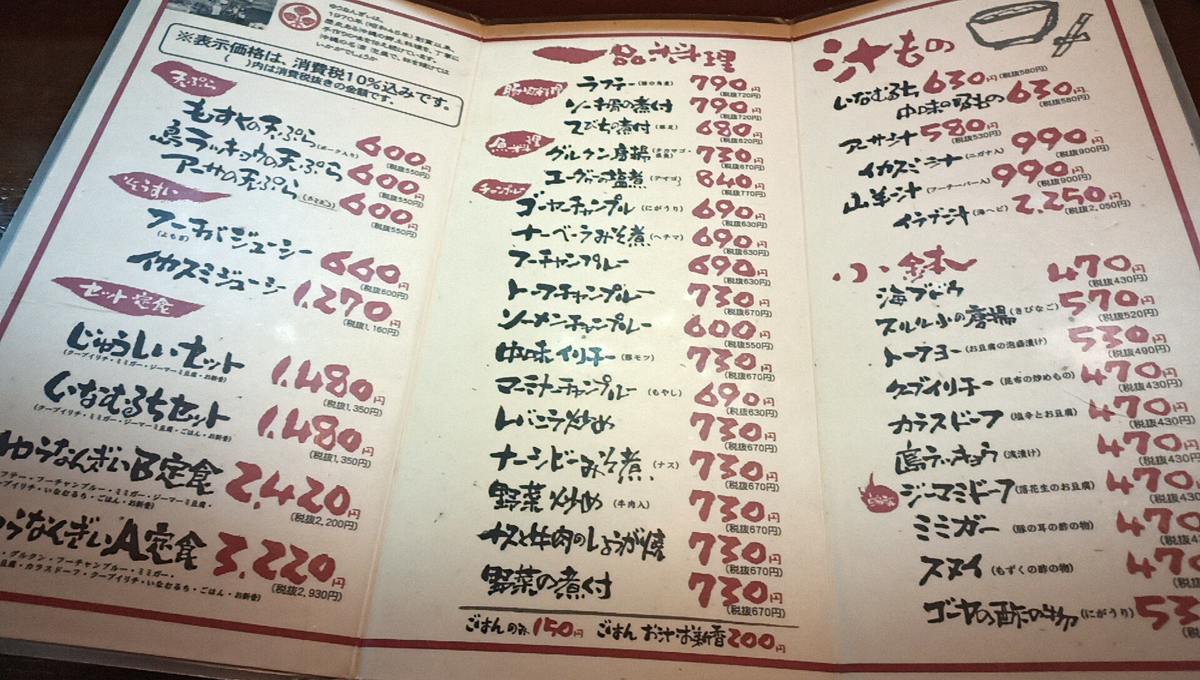 ゆうなんぎいは、
1970年(昭和45年)創業以来、
※表示価格は、消費税10%込みです。
( )内は消費税抜きの金額です。
天ぷら
もずくの天ぷら(ポーク入り) 600円 (税抜550円)
島ラッキョウの天ぷら 600円 (税抜550円)
アーサの天ぷら 600円 (税抜550円)
ぞうすい
フーチバジューシー (よもぎ) 660円 (税抜600円)
イカスミジューシー 1,270円 (税抜1,160円)
セット 定食
じゅうしいセット 1,480円 (税抜1,350円)
(クーブイリチ・ミミガー・ジーマーミ豆腐・お新香)
いなむるちセット 1,480円 (税抜1,350円)
(クーブイリチ・ミミガー・ジーマーミ豆腐・ごはん・お新香)
ゆうなんぎいB定食 2,420円 (税抜2,200円)
フテー・フーチャンプルー・ミミガー・ジーマーミ豆腐・
ーブイリチ・いなむるち・ごはん・お新香)
うなんぎいA定食 3,220円 (税抜2,930円)
・グルクン・フーチャンプルー・ミミガー・
豆腐・カラスドーフ・クーブイリチ・いなむるち・ごはん・お新香)
一品料理
豚肉料理
ラフテー (豚の角煮) 790円 (税抜720円)
ソーキ骨の煮付 790円 (税抜720円)
てびちの煮付 (豚足) 680円 (税抜620円)
魚料理
グルクン唐揚 (タカサゴ・姿見) 730円 (税抜670円)
エーグヮーの塩煮 (アイゴ) 840円 (税抜770円)
チャンプルー
ゴーヤーチャンプルー (にがうり) 690円 (税抜630円)
ナーベーラみそ煮 (ヘチマ) 690円 (税抜630円)
フーチャンプルー 690円 (税抜630円)
トーフチャンプルー 730円 (税抜670円)
ソーメンチャンプルー 600円 (税抜550円)
中味イリチー (豚モツ) 730円 (税抜670円)
マーミナーチャンプルー (もやし) 690円 (税抜630円)
レバニラ炒め 730円 (税抜670円)
ナーシビーみそ煮 (ナス) 730円 (税抜670円)
野菜炒め (牛肉入) 730円 (税抜670円)
ナスと牛肉のしょうが焼 730円 (税抜670円)
野菜の煮付 730円 (税抜670円)
ごはんのみ 150円 ごはん お汁 お新香 200円
汁もの
いなむるち 630円 (税抜580円)
中味の吸もの 630円 (税抜580円)
アーサ汁 580円 (税抜530円)
イカスミ汁 (ニガナ入) 990円 (税抜900円)
山羊汁 (フーチーバー入) 990円 (税抜900円)
イラブ汁 (海ヘビ) 2,250円 (税抜2,050円)
小鉢
海ブドウ 470円 (税抜430円)
スルル小の唐揚 (きびなご) 570円 (税抜520円)
トーフヨー (お豆腐の泡盛漬け) 530円 (税抜490円)
クーブイリチー (昆布の炒めもの) 470円 (税抜430円)
カラスドーフ (塩辛とお豆腐) 470円 (税抜430円)
島ラッキョウ (浅漬け) 470円 (税抜430円
ジーマミドーフ (落花生のお豆腐) 470 (税抜430
ミミガー (豚の耳の酢の物) 470
スヌイ (もずくの酢の物) 470
ゴーヤの酢の物 (にがうり) 53